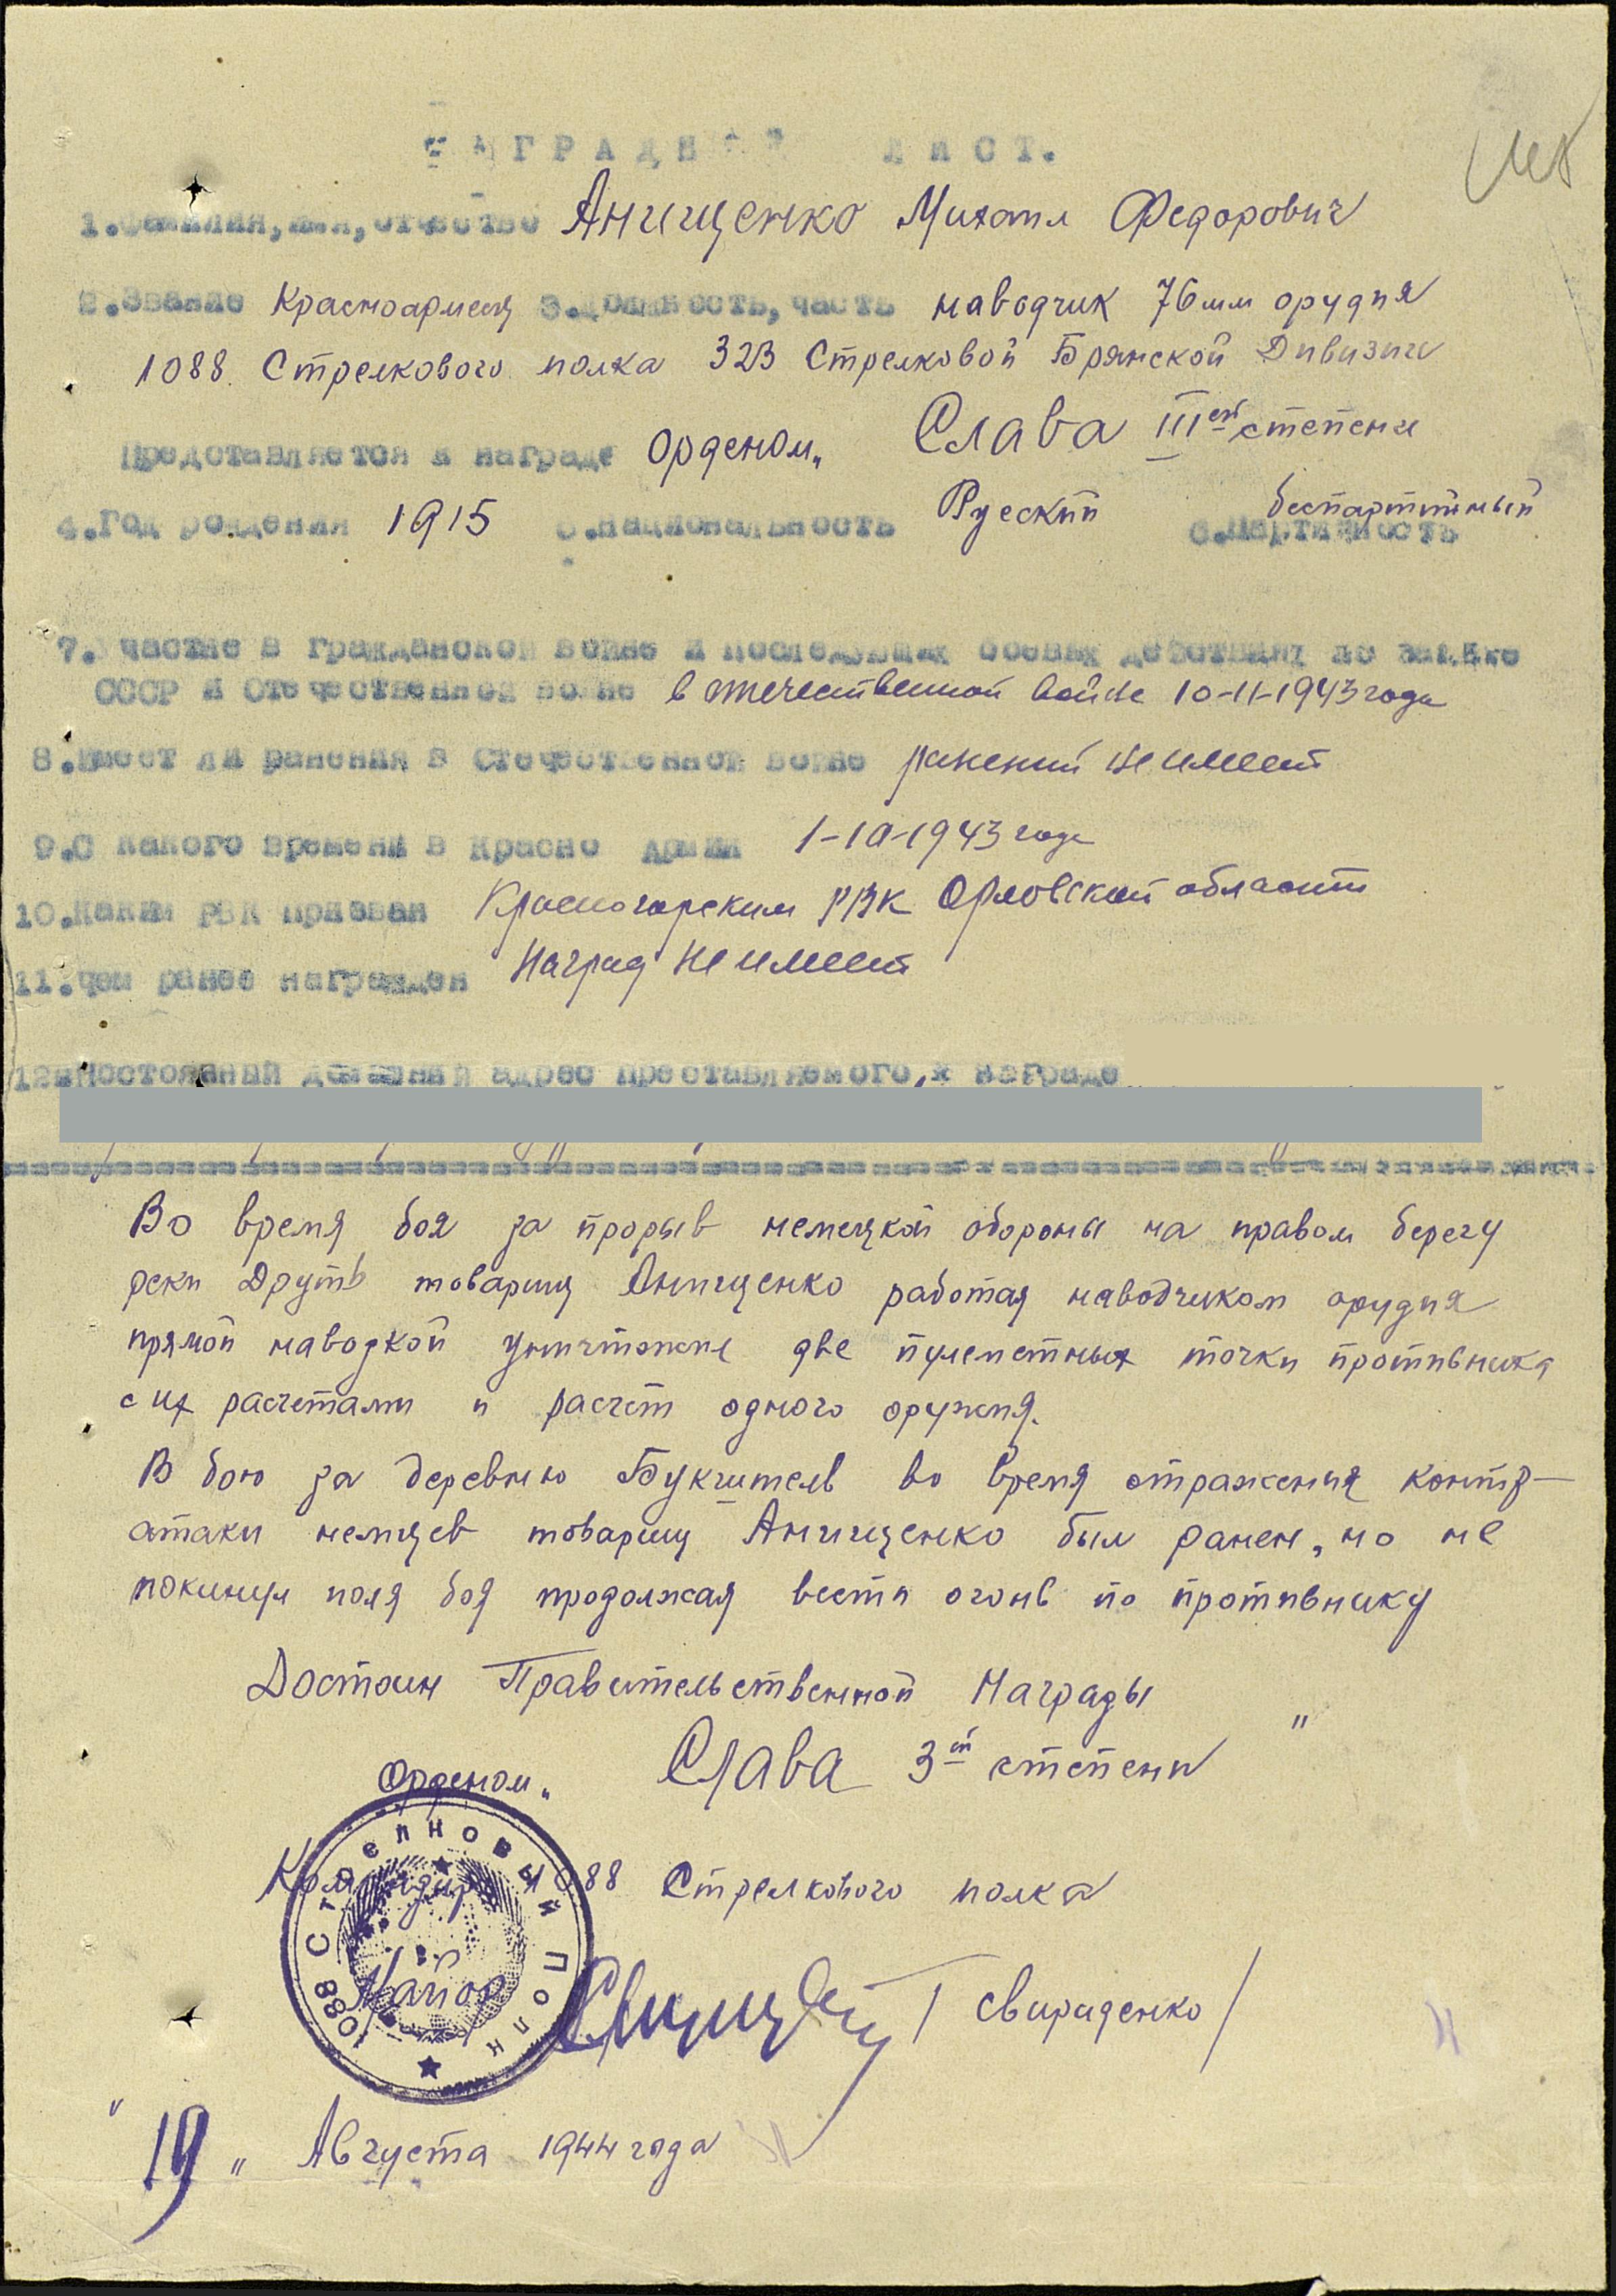 НАГРАДНОЙ ЛИСТ.
1.Фамилия, имя, отчество Анищенко Михаил Федорович
2.Звание Красноармеец 3.Должность, часть наводчик 76мм орудия
1088 Стрелкового полка 323 Стрелковой Брянской Дивизии
Представляется к награде Орденом „Слава IIIей степени
4.Год рождения 1915 5.Национальность Руский 6.Партийность беспартийный
7. Участие в гражданской войне и последующих боевых действиях по защите
СССР и Отечественной войне в отечественной войне 10-11-1943 года
8.Имеет ли ранения в Отечественной войне ранений не имеет
9.С какого времени в Красной Армии 1-10-1943 года
10.Каким РВК призван Красногорским РВК Орловской области
11.чем ранее награжден Наград не имеет
12.Постоянный домашний адрес преставляемого к награде
Во время боя за прорыв немецкой обороны на правом берегу
реки Друть товарищ Анищенко работая наводчиком орудия
прямой наводкой уничтожил две пулеметных точки противника
с их расчетами и расчет одного оружия.
В бою за деревню Букчитель во время отражения контр-
атаки немцев товарищ Анищенко был ранен, но не
покинул поля боя продолжая вести огонь по противнику
Достоин Правительственной Награды
Орденом „Слава 3ей степени"
Командир 1088 Стрелкового полка
1088 СТРЕЛКОВЫЙ ПОЛК
Майор /Свириденко/
"19" Августа 1944 года